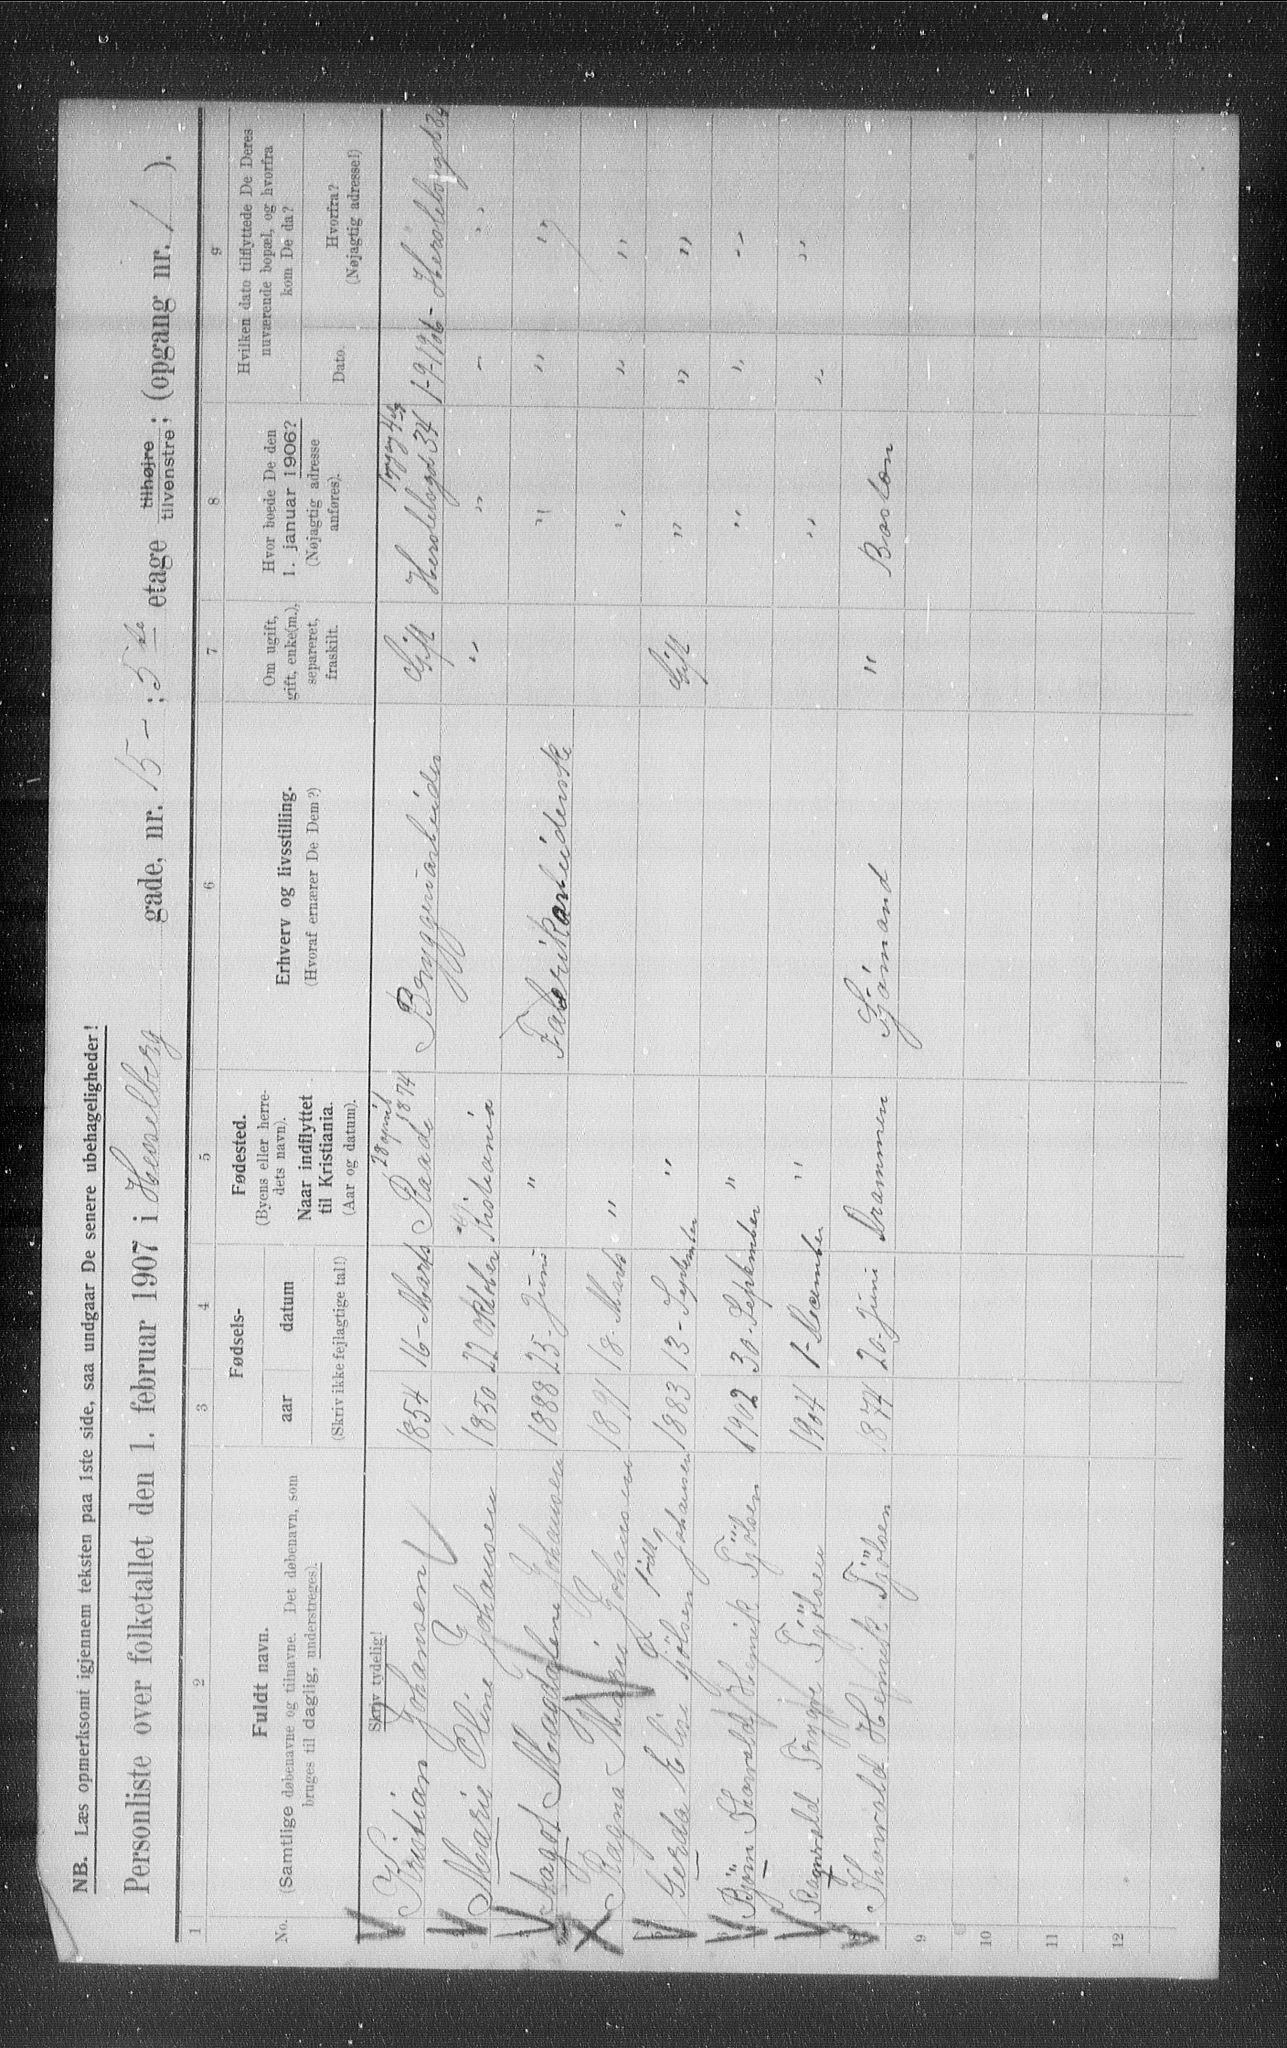 NB. Læs opmerksomt igjennem teksten paa 1ste side, saa undgaar De senere ubehageligheder!
Personliste over folketallet den 1. februar 1907 i Hesselberg gade, nr. 15 - ; 5 te etage tilhøjre tilvenstre; (opgang nr. 1 ).
1 2 3 4 5 6 7 8 9
No.
Fuldt navn.
(Samtlige døbenavne og tilnavne. Det døbenavn, som
bruges til daglig, understreges).
Skriv tydelig!
Fødsels-
aar datum
(Skriv ikke fejlagtige tal!)
Fødested.
(Byens eller herre-
dets navn).
Naar indflyttet
til Kristiania.
(Aar og datum).
Erhverv og livsstilling.
(Hvoraf ernærer De Dem?)
Om ugift,
gift, enke(m.),
separeret,
fraskilt.
Hvor boede De den
1. januar 1906?
(Nøjagtig adresse
anføres).
Hvilken dato tilflyttede De Deres
nuværende bopæl, og hvorfra
kom De da?
Dato.
Hvorfra?
(Nøjagtig adresse!)
28 april
Kristian Johansen 1854 16 - Marts Raade 1874 Bryggeriarbeider Gift 34 1-9-1906 -
Marie Oline Johansen 1850 22 Oktober Kristiania " " - "
Aagot Magdalene Johansen 1888 25 - Juni " Fabrikarbeiderske " " "
Ragna Marie Johansen 1891 18 - Marts " " " "
Gerda Elise Tjölsen født Johansen 1883 13 - September " Gift " " "
6 Bjørn Thorvald Henrik Tjölsen 1902 30 - September " " " "
Ragnvald Trygve Tjölsen 1904 1 - December " " " "
8 Thorvald Henrik Tjölsen 1874 20 - Juni Drammen Sjömand " Boston
9
10
11
12